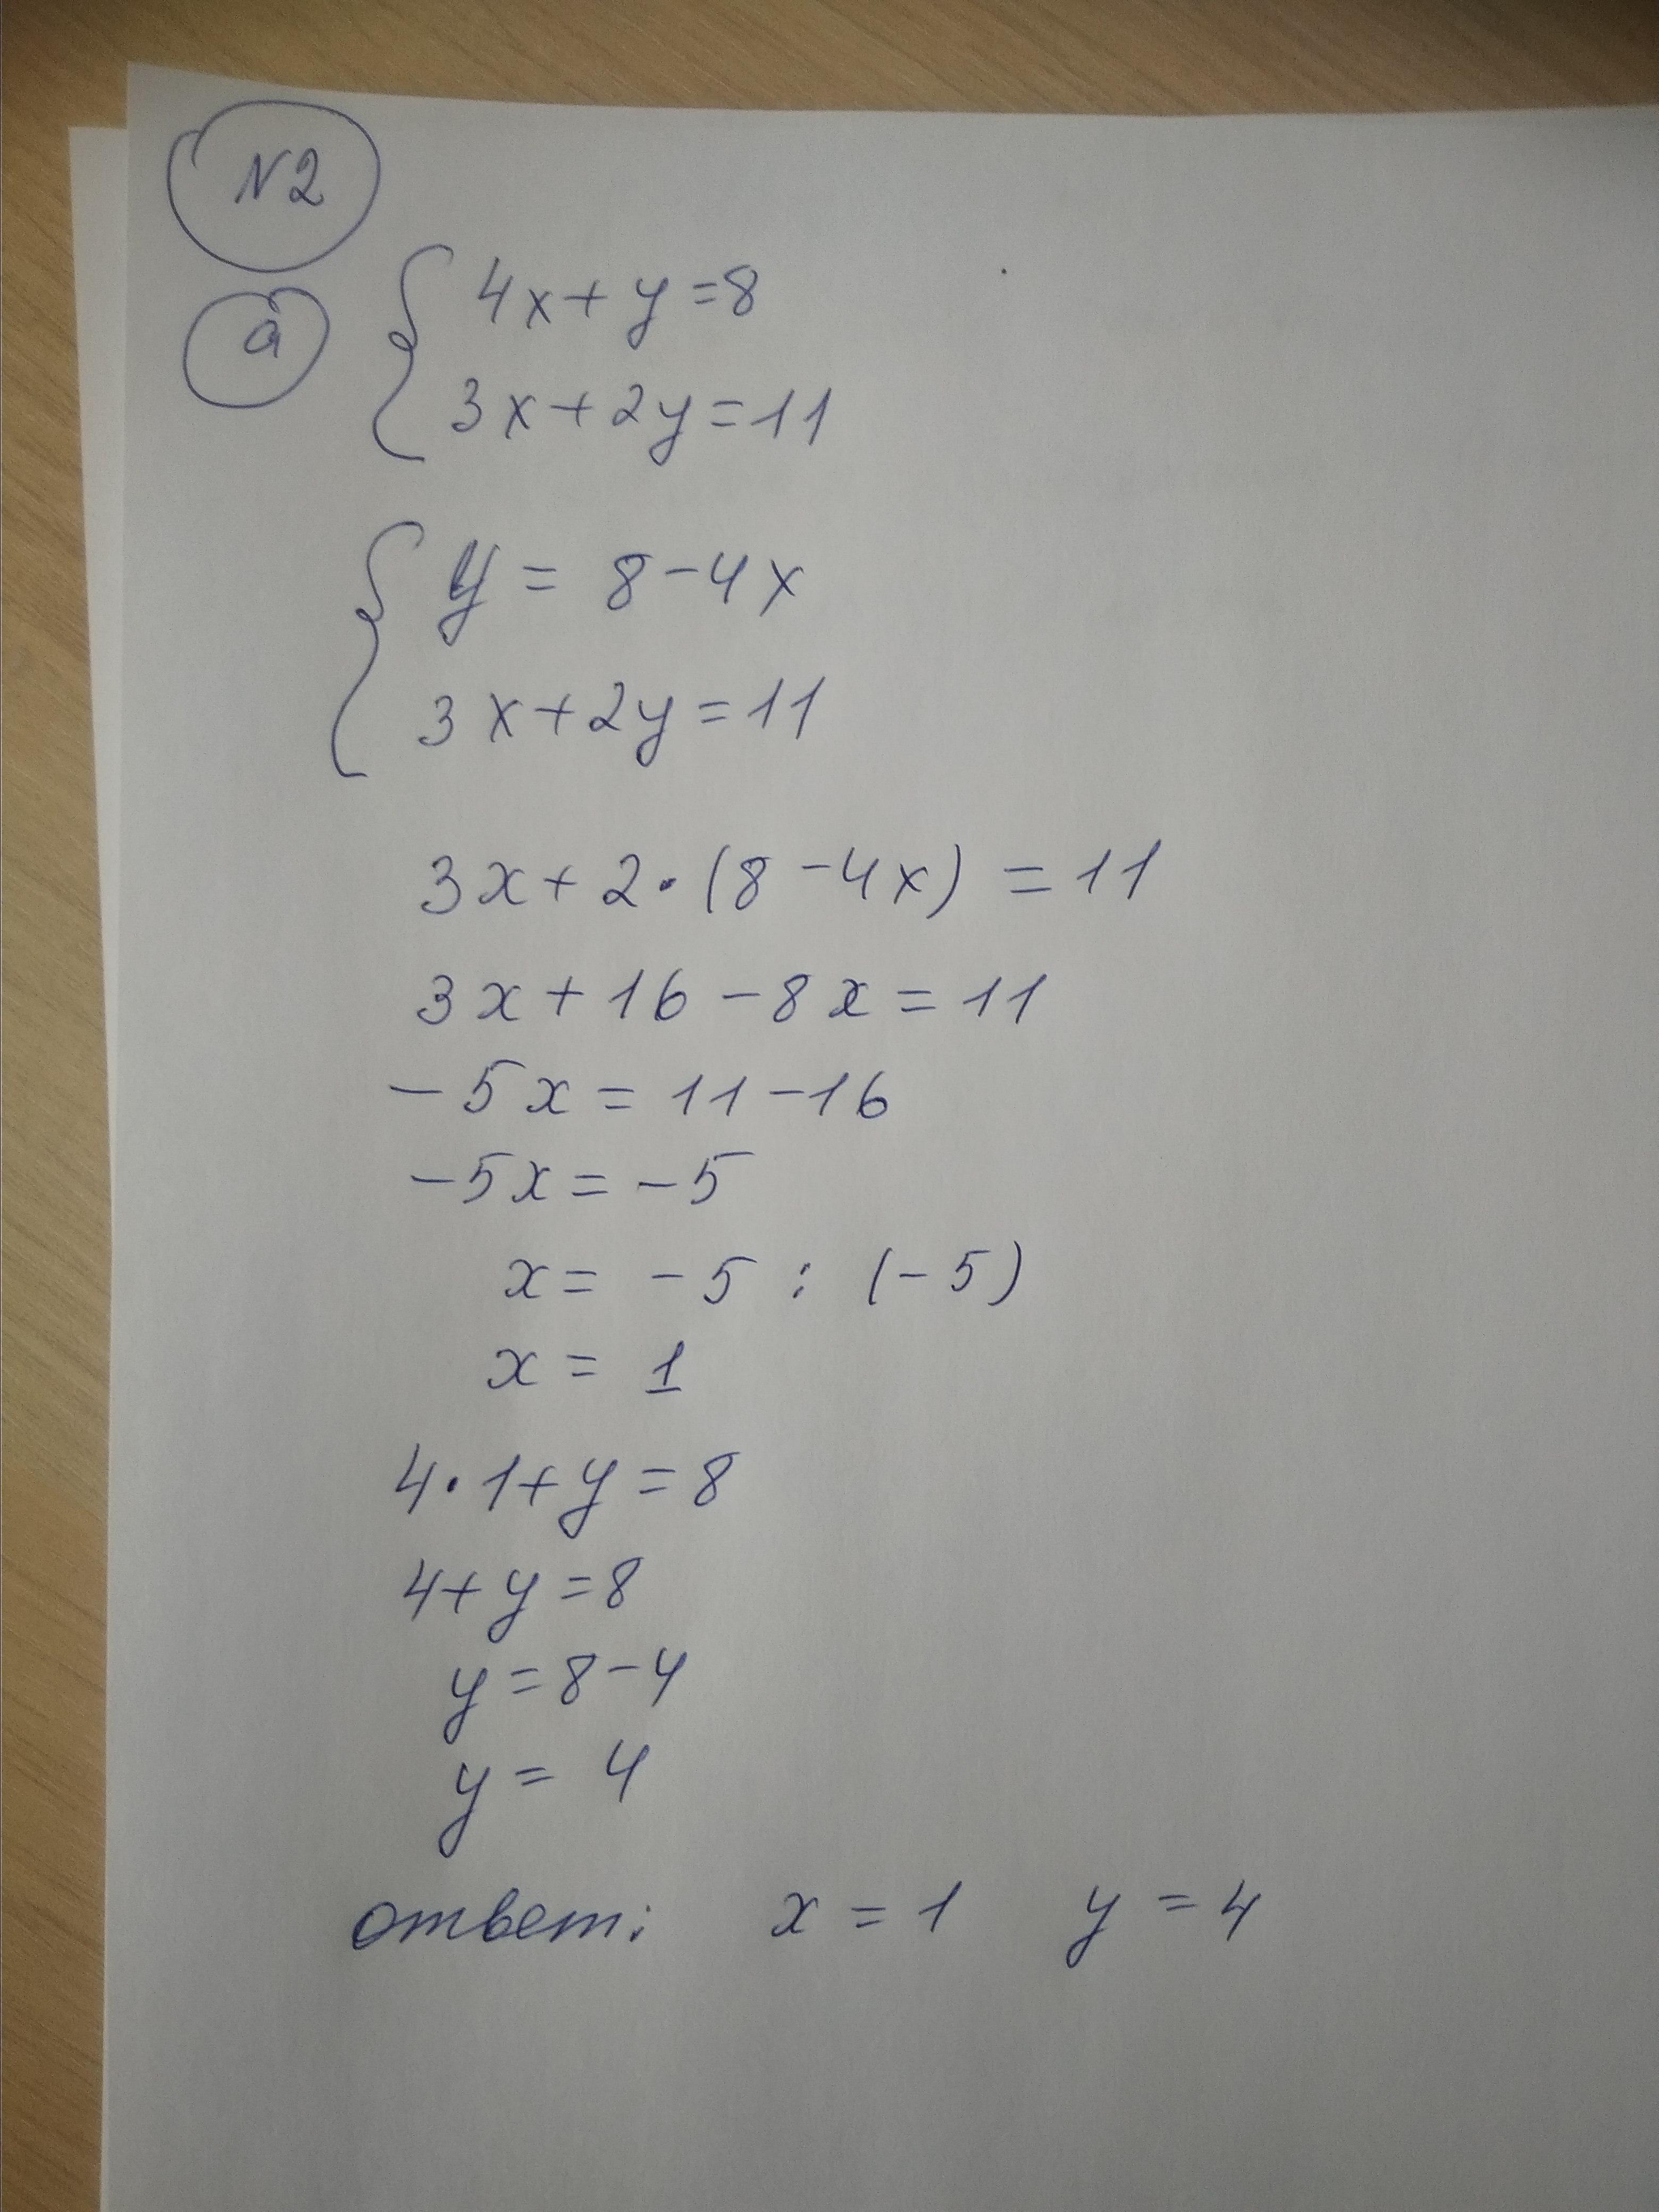 N2
а
4x+y=8
3x+2y=11
y = 8-4x
3x+2y=11
3x+2·(8-4x)=11
3x+16-8x=11
-5x=11-16
-5x=-5
x=-5:(-5)
x=1
4·1+y=8
4+y=8
y=8-4
y=4
ответ: x=1 y=4